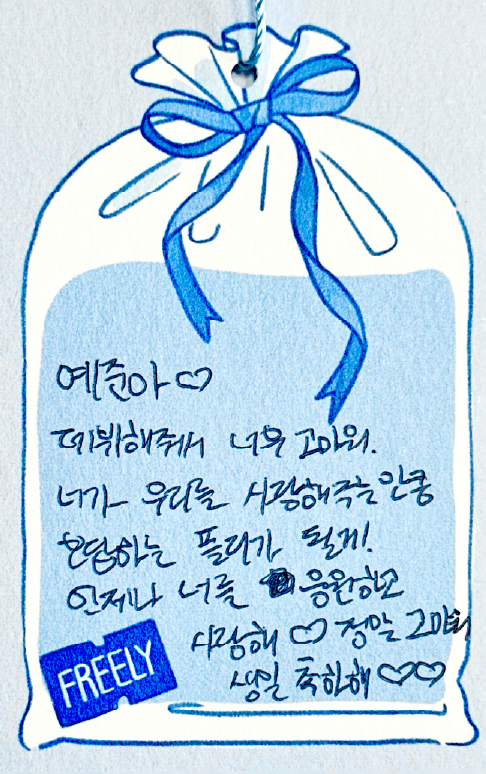 예준아♡
데뷔해줘서 너무 고마워.
너가 우리를 사랑해주는만큼
보답하는 플리가 될게!
언제나 너를 응원하고
사랑해 ♡ 정말 고마워
생일 축하해 ♡♡
FREELY